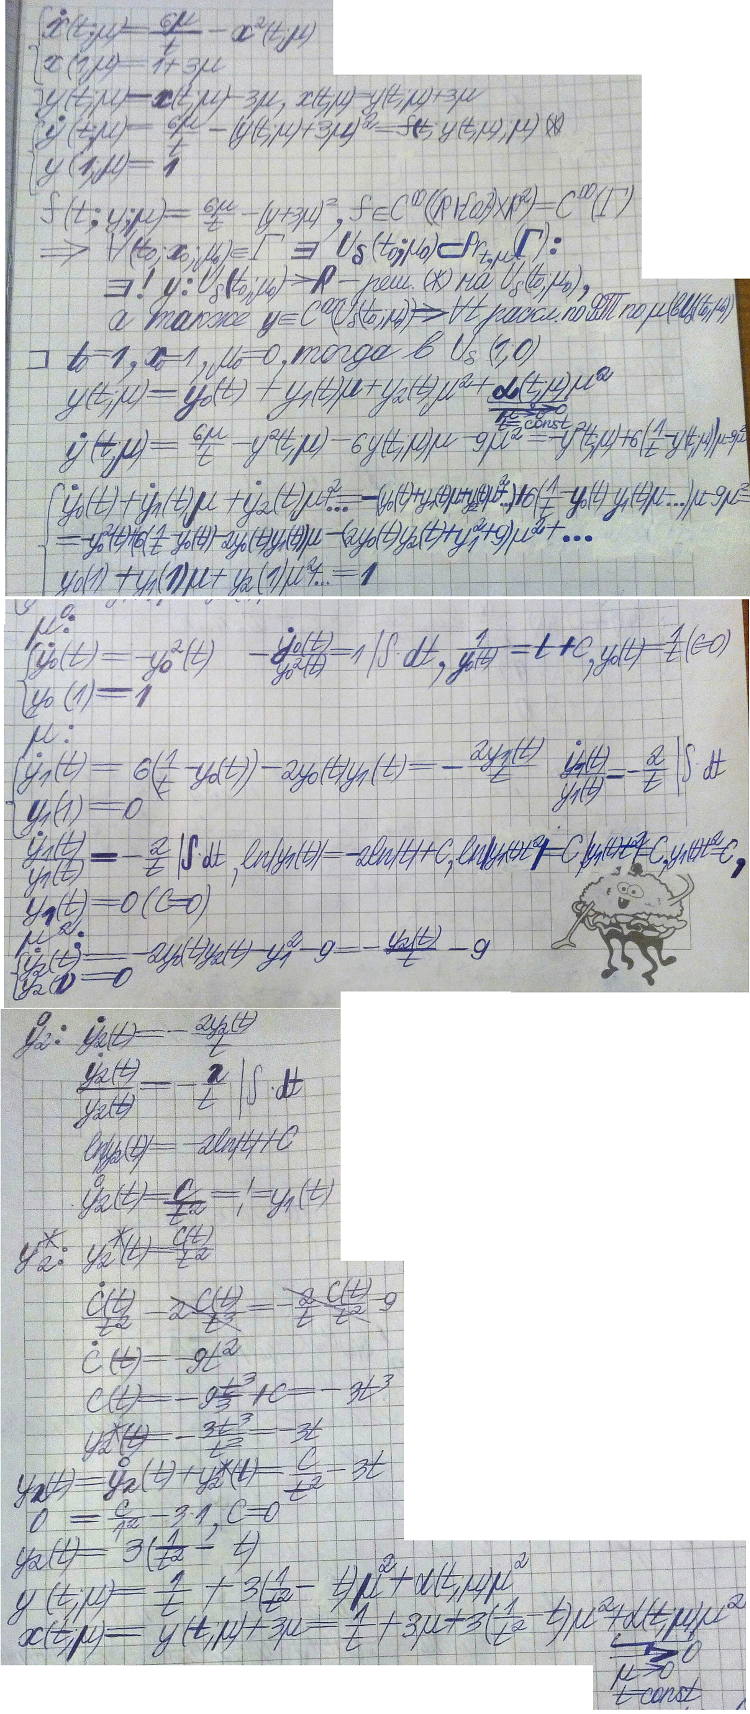 ẋ(t;μ) = 6μ/t - x²(t,μ)
x(1,μ) = 1+3μ
y(t,μ) = x(t,μ) - 3μ, x(t,μ) = y(t,μ)+3μ
ẏ(t,μ) = 6μ/t - (y(t,μ)+3μ)² = f(t,y(t,μ),μ) (*)
y(1,μ) = 1
f(t;y;μ) = 6μ/t - (y+3μ)², f∈C^(∞)((R\{0})×R²) = C^(∞)(Γ)
⇒ ∀(t₀;x₀;μ₀)∈Γ ∃ U_δ(t₀;μ₀)⊂Pr_{t,μ}(Γ):
∃! y: U_δ(t₀,μ₀)→R - реш. (*) на U_δ(t₀,μ₀),
а также y∈C^(∞)(U_δ(t₀,μ₀)) ⇒ ∀t раскл. по ФТ по μ
] t₀=1, x₀=1, μ₀=0, тогда в U_δ(1,0)
y(t,μ) = y₀(t) + y₁(t)μ + y₂(t)μ² + α(t,μ)μ²
μ→0 →0
t=const
ẏ(t,μ) = 6μ/t - y²(t,μ) - 6y(t,μ)μ - 9μ² = -y²(t,μ)+6(1/t - y(t,μ))μ-9μ²
ẏ₀(t)+ẏ₁(t)μ+ẏ₂(t)μ²... = -(y₀(t)+y₁(t)μ+y₂(t)μ²...)²+6(1/t - y₀(t)-y₁(t)μ-...)μ-9μ²
= -y₀²(t)+(6(1/t - y₀(t))-2y₀(t)y₁(t))μ - (2y₀(t)y₂(t)+y₁²+9)μ²+...
y₀(1)+y₁(1)μ+y₂(1)μ²... = 1
μ⁰:
ẏ₀(t) = -y₀²(t) -ẏ₀(t)/y₀²(t) = 1 |∫·dt, 1/y₀(t) = t+C, y₀(t) = 1/t (C=0)
y₀(1) = 1
μ:
ẏ₁(t) = 6(1/t - y₀(t)) - 2y₀(t)y₁(t) = -2y₁(t)/t ẏ₁(t)/y₁(t) = -2/t |∫·dt
y₁(1) = 0
ẏ₁(t)/y₁(t) = -2/t |∫·dt, ln|y₁(t)| = -2ln|t|+C, ln|y₁(t)t²| = C, |y₁(t)t²|=C, y₁(t)t²=C,
y₁(t) = 0 (C=0)
μ²:
ẏ₂(t) = -2y₀(t)y₂(t) - y₁² - 9 = -y₂(t)/t - 9
y₂(1) = 0
ẙ₂: ẏ₂(t) = -2y₂(t)/t
ẏ₂(t)/y₂(t) = -2/t |∫·dt
ln|y₂(t)| = -2ln|t|+C
ẙ₂(t) = C/t² =¦= y₁(t)
y₂*: y₂*(t) = C(t)/t²
Ċ(t)/t² - 2C(t)/t³ = -2/t C(t)/t² - 9
Ċ(t) = -9t²
C(t) = -9t³/3 + C = -3t³
y₂*(t) = -3t³/t² = -3t
y₂(t) = ẙ₂(t)+y₂*(t) = C/t² - 3t
0 = C/1² - 3·1, C=0
y₂(t) = 3(1/t² - t)
y(t;μ) = 1/t + 3(1/t² - t)μ² + α(t,μ)μ²
x(t,μ) = y(t,μ)+3μ = 1/t + 3μ + 3(1/t² - t)μ² + α(t,μ)μ²
→ 0
μ→0
t-const